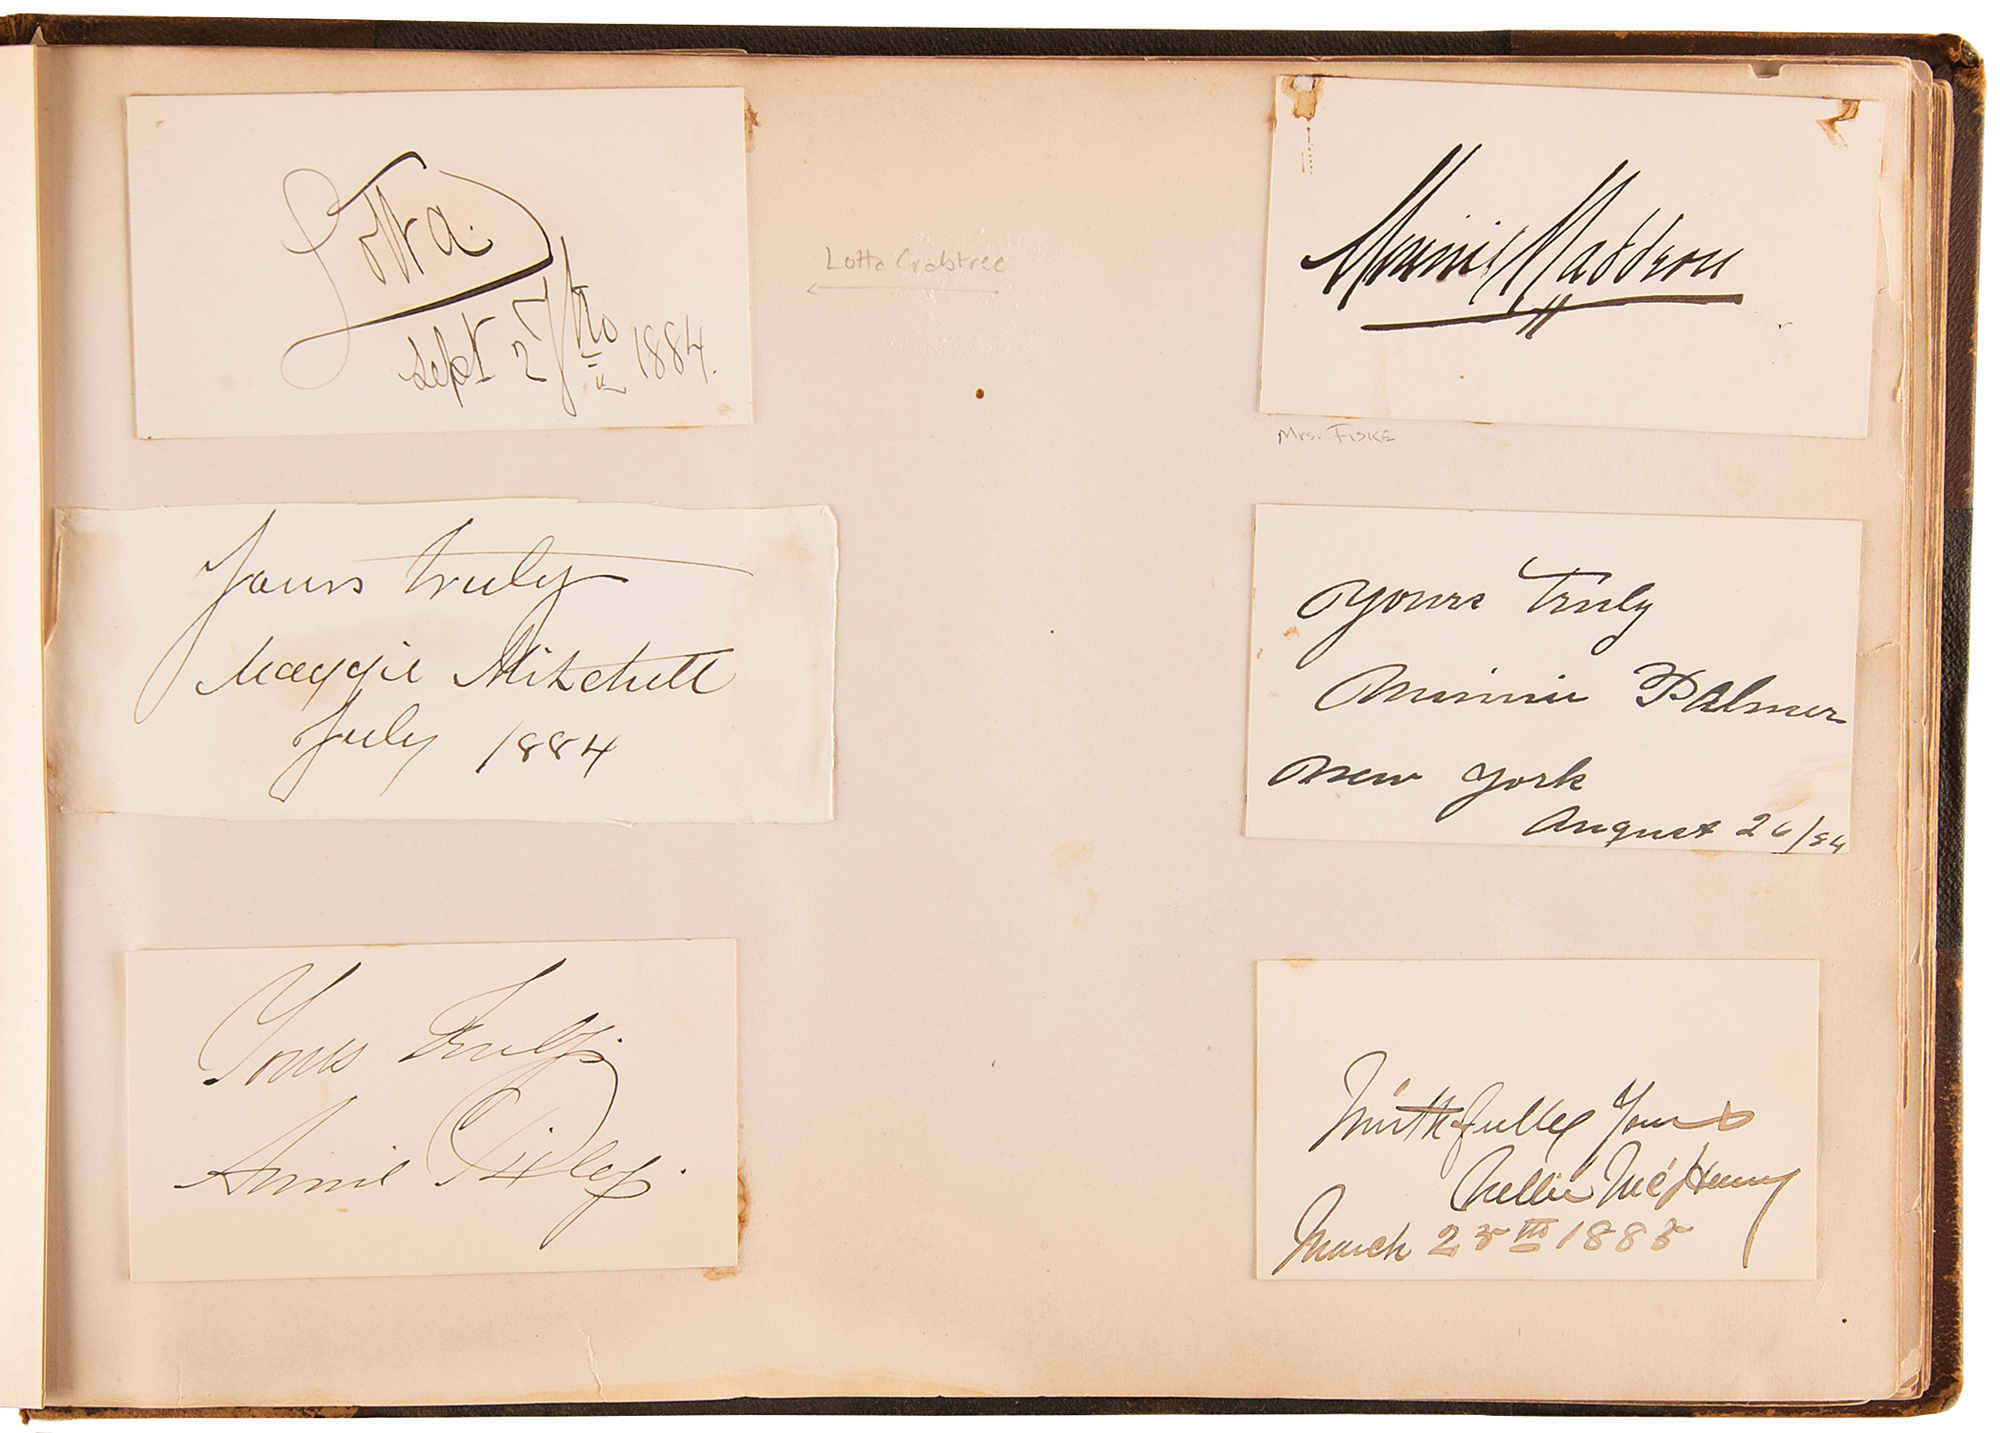 Lotta.
Sept 27th 1884.
Lotta Crabtree
Minnie Maddern
Mrs. FISKE
Yours truly
Maggie Mitchell
July 1884
Yours Truly
Minnie Palmer
New York
August 26/84
Yours Truly
Annie Pixley.
Mirthfully Yours
Nellie McHenry
March 25th 1885